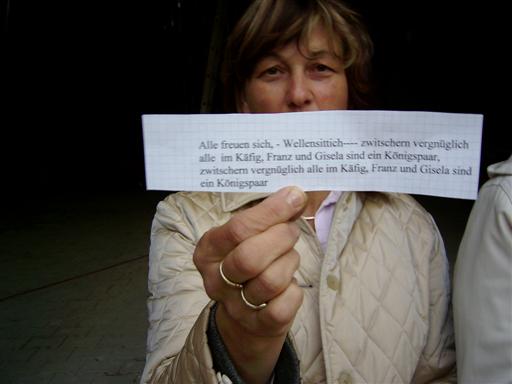 Alle freuen sich, - Wellensittich---- zwitschern vergnüglich
alle im Käfig, Franz und Gisela sind ein Königspaar,
zwitschern vergnüglich alle im Käfig, Franz und Gisela sind
ein Königspaar